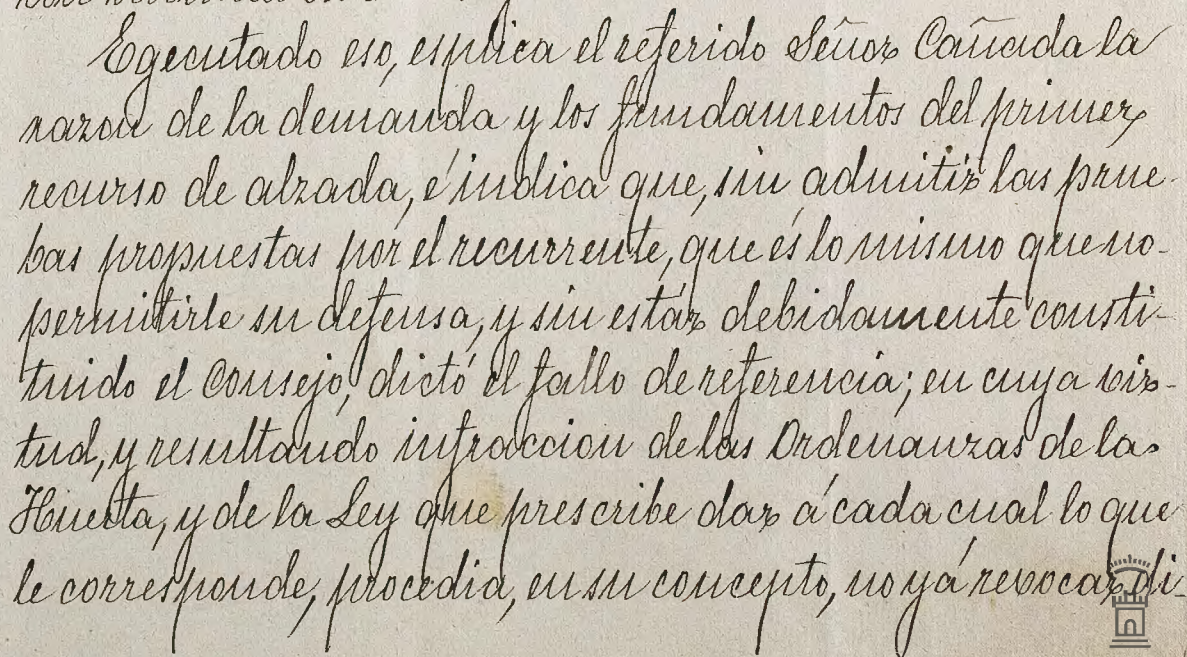 Egecutado eso, esplica el referido Señor Cañada la
razon de la demanda y los fundamentos del primer
recurso de alzada, é indica que, sin admitir las prue-
bas propuestas por el recurrente, que és lo mismo que no
permitirle su defensa, y sin estár debidamente consti-
tuido el Consejo, dictó el fallo de referencia; en cuya vir-
tud, y resultando infraccion de las Ordenanzas de la
Huerta, y de la Ley que prescribe dar á cada cual lo que
le corresponde, procedia, en su concepto, no yá revocar di-